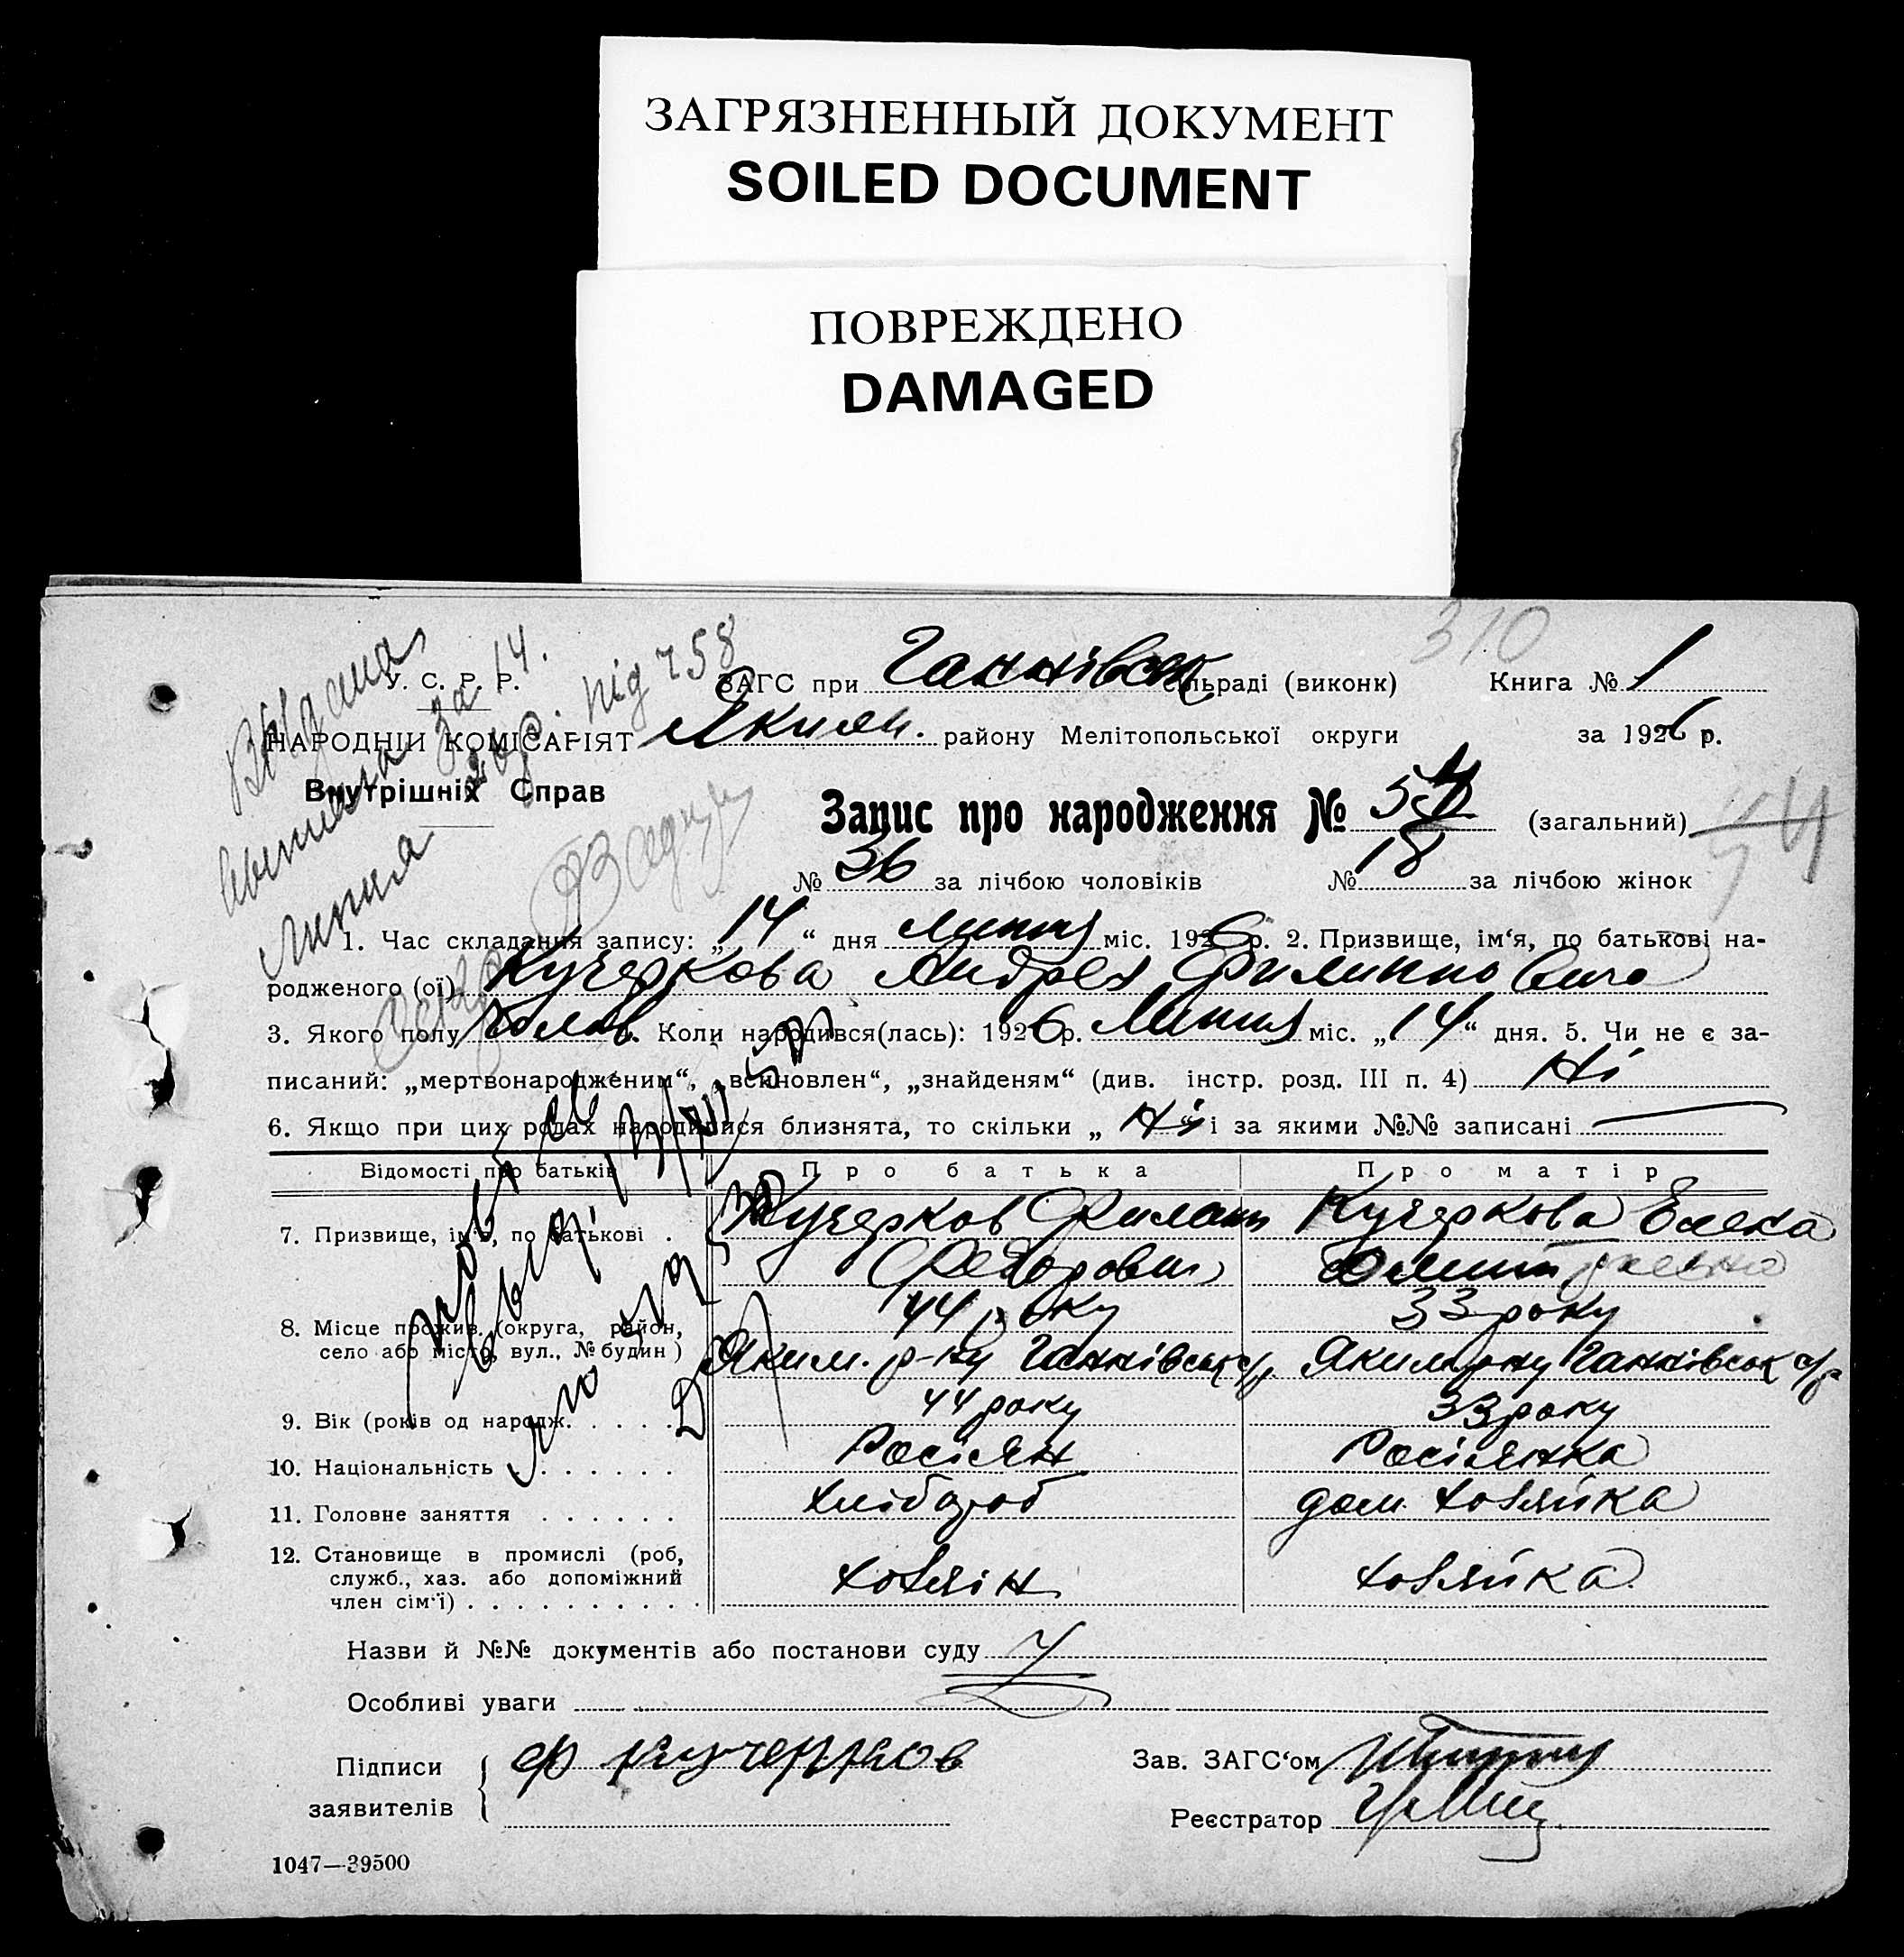 ЗАГРЯЗНЕННЫЙ ДОКУМЕНТ
SOILED DOCUMENT
ПОВРЕЖДЕНО
DAMAGED
310
У. С. Р. Р.
ЗАГС при Ганнівськ сільраді (виконк) Книга № 1
НАРОДНІЙ КОМІСАРІЯТ
Яким. району Мелітопольської округи за 1926 р.
Внутрішніх Справ
Запис про народження № 54 (загальний) 54
№ 36 за лічбою чоловіків № 18 за лічбою жінок
1. Час складання запису: „ 14 “ дня липня міс. 1926 р. 2. Призвище, ім‘я, по батькові на-
родженого (ої) Кучеркова Андрея Филиппо вича
3. Якого полу Чолов. Коли народився(лась): 1926 р. Липня міс. „ 14 “ дня. 5. Чи не є за-
писаний: „мертвонародженим“, „всиновлен“, „знайденям“ (див. інстр. розд. III п. 4) Ні
6. Якщо при цих родах народилися близнята, то скільки „ Ні “ і за якими №№ записані
Відомості про батьків Про батька Про матір
7. Призвище, ім‘я, по батькові . Кучерков Филипп Кучеркова Елена
Федорович
44 року 33 року
8. Місце прожив. (округа, район,
село або місто, вул., № будин) Яким. р-ну Ганнівськ с/р. Яким р-ну Ганнівськ с/р
9. Вік (років од народж. . . . . . 44 року 33 року
10. Національність . . . . . . . Росіян Росіянка
11. Головне заняття . . . . . . хлібороб дом. хозяйка
12. Становище в промислі (роб,
служб., хаз. або допоміжний
член сім‘ї) . . . . . . . . . . хозяін хозяйка
Назви й №№ документів або постанови суду
Особливі уваги
Підписи
заявителів
Ф Кучерков
Зав. ЗАГС‘ом
Реєстратор
1047—39500